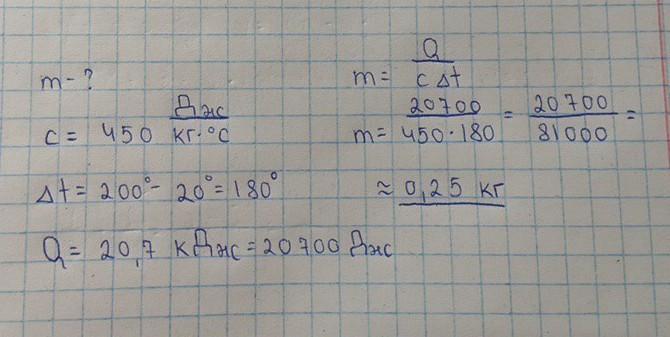 m - ?
c = 450 Дж/кг·°C
Δt = 200° - 20° = 180°
Q = 20,7 кДж = 20700 Дж
m = Q/cΔt
m = 20700/450·180 = 20700/81000 =
≈ 0,25 кг